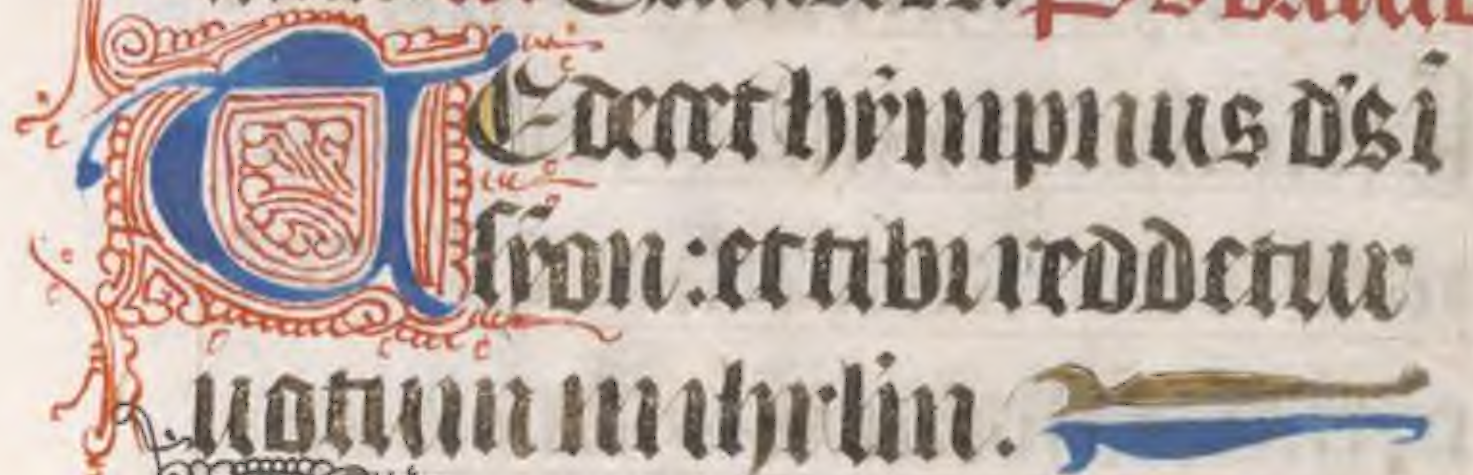 TE decet hympnus d's ī
syon : et tibi reddetur
uotum in ihrlm .